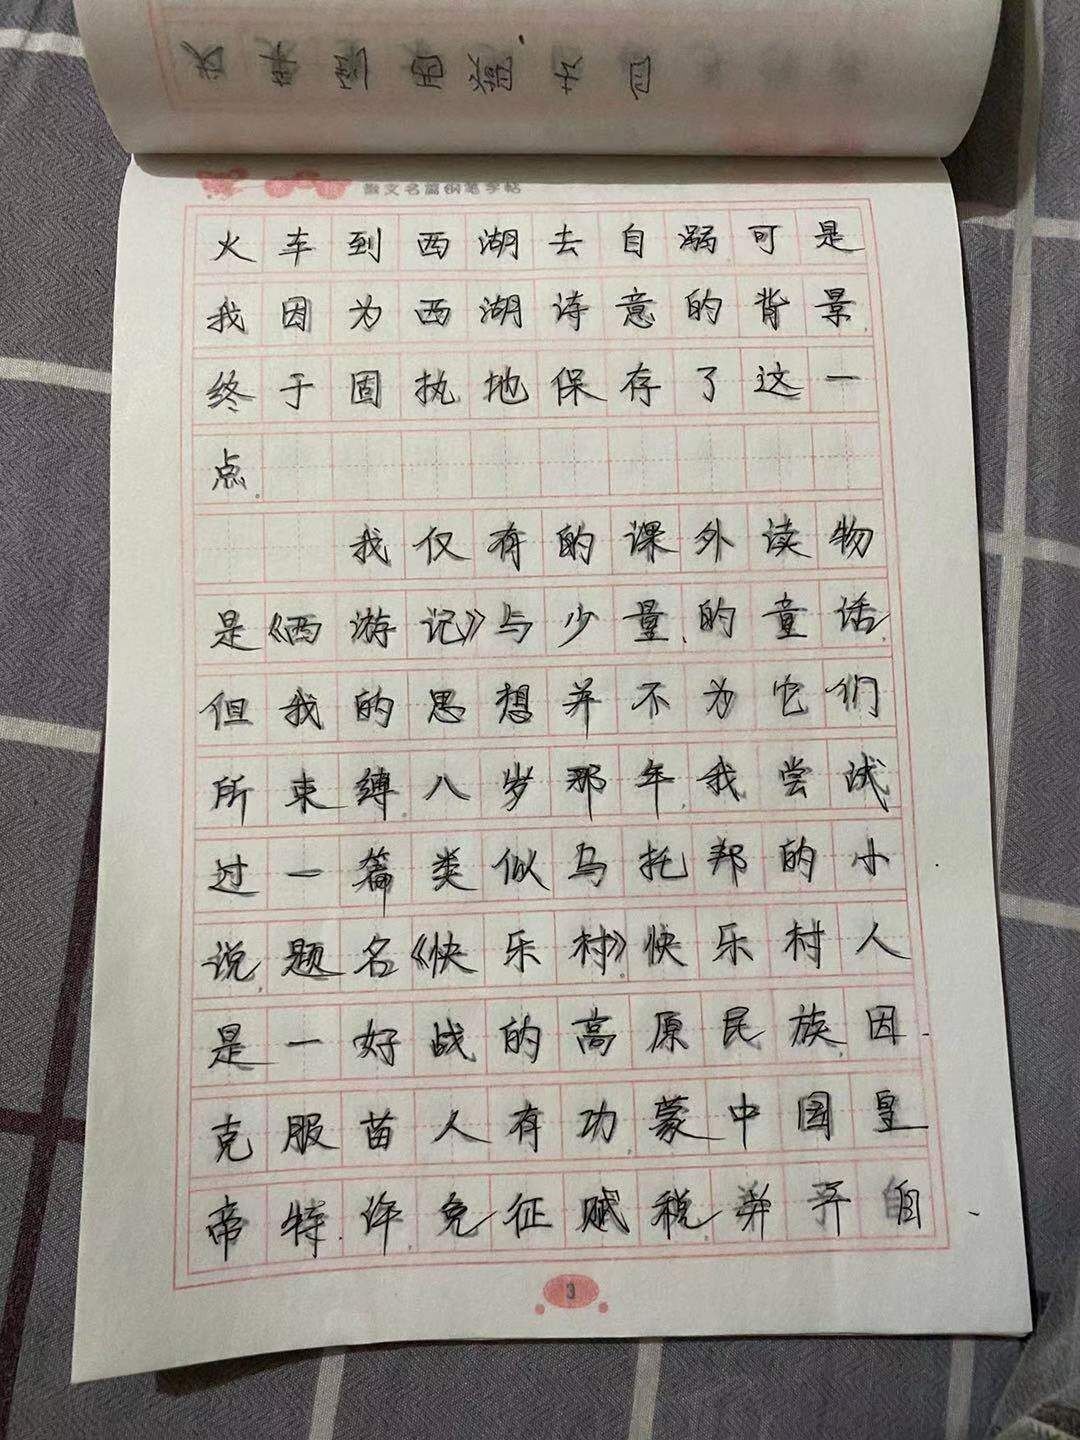 散文名篇钢笔字帖
火车到西湖去自溺可是
我因为西湖诗意的背景
终于固执地保存了这一
点。
我仅有的课外读物
是《西游记》与少量的童话,
但我的思想并不为它们
所束缚八岁那年,我尝试
过一篇类似乌托邦的小
说,题名《快乐村》。快乐村人
是一好战的高原民族,因
克服苗人有功蒙中国皇
帝特许免征赋税并予自
3